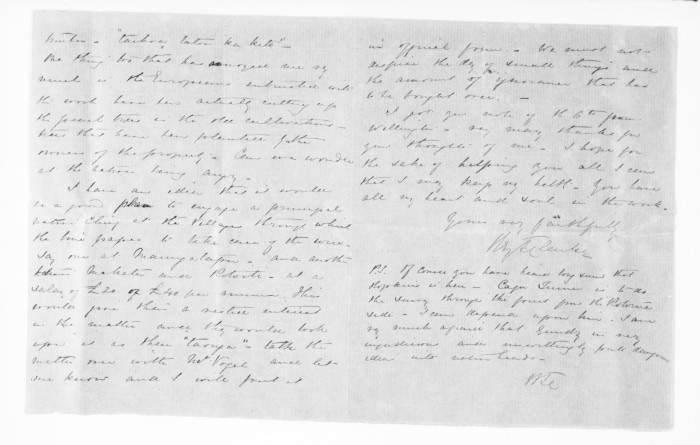 "taihoa, taton ka kite" -
One thing too that has annoyed me very
much is the Europeans entrusted with
the work have been actually cutting up
the forest trees in the old cultivations -
trees that have been planted by the
owners of the property - Can we wonder
at the natives being angry -
I have an idea that it would
be a good plan to engage a principal
native Chief at the villages through which
the line passes to take care of the wire -
say one at Maungatapu - and another
between Maketu and Rotorua - at a
salary of £20 or £40 per annum. This
would give them a material interest
in the matter and they would look
upon it as their "taonga" - talk the
matter over with Mr Vogel and let
me know and I will put it
in official form - We must not
despise the day of small things and
the amount of ignorance that has
to be bought over -
I got your note of the 6th from
Wellington - very many thanks for
your thoughts of me - I hope for
the sake of helping you all I can
that I may keep my health - You have
all my heart and soul in the work -
Yours very faithfully
P.S. Of course you have heard by now that
is here - Capt Turner is to do
the survey through the forest from the Rotorua
side - I can depend upon him. I am
very much against that Gundry is very
injudicious and unwittingly puts dangerous
ideas into natives heads -